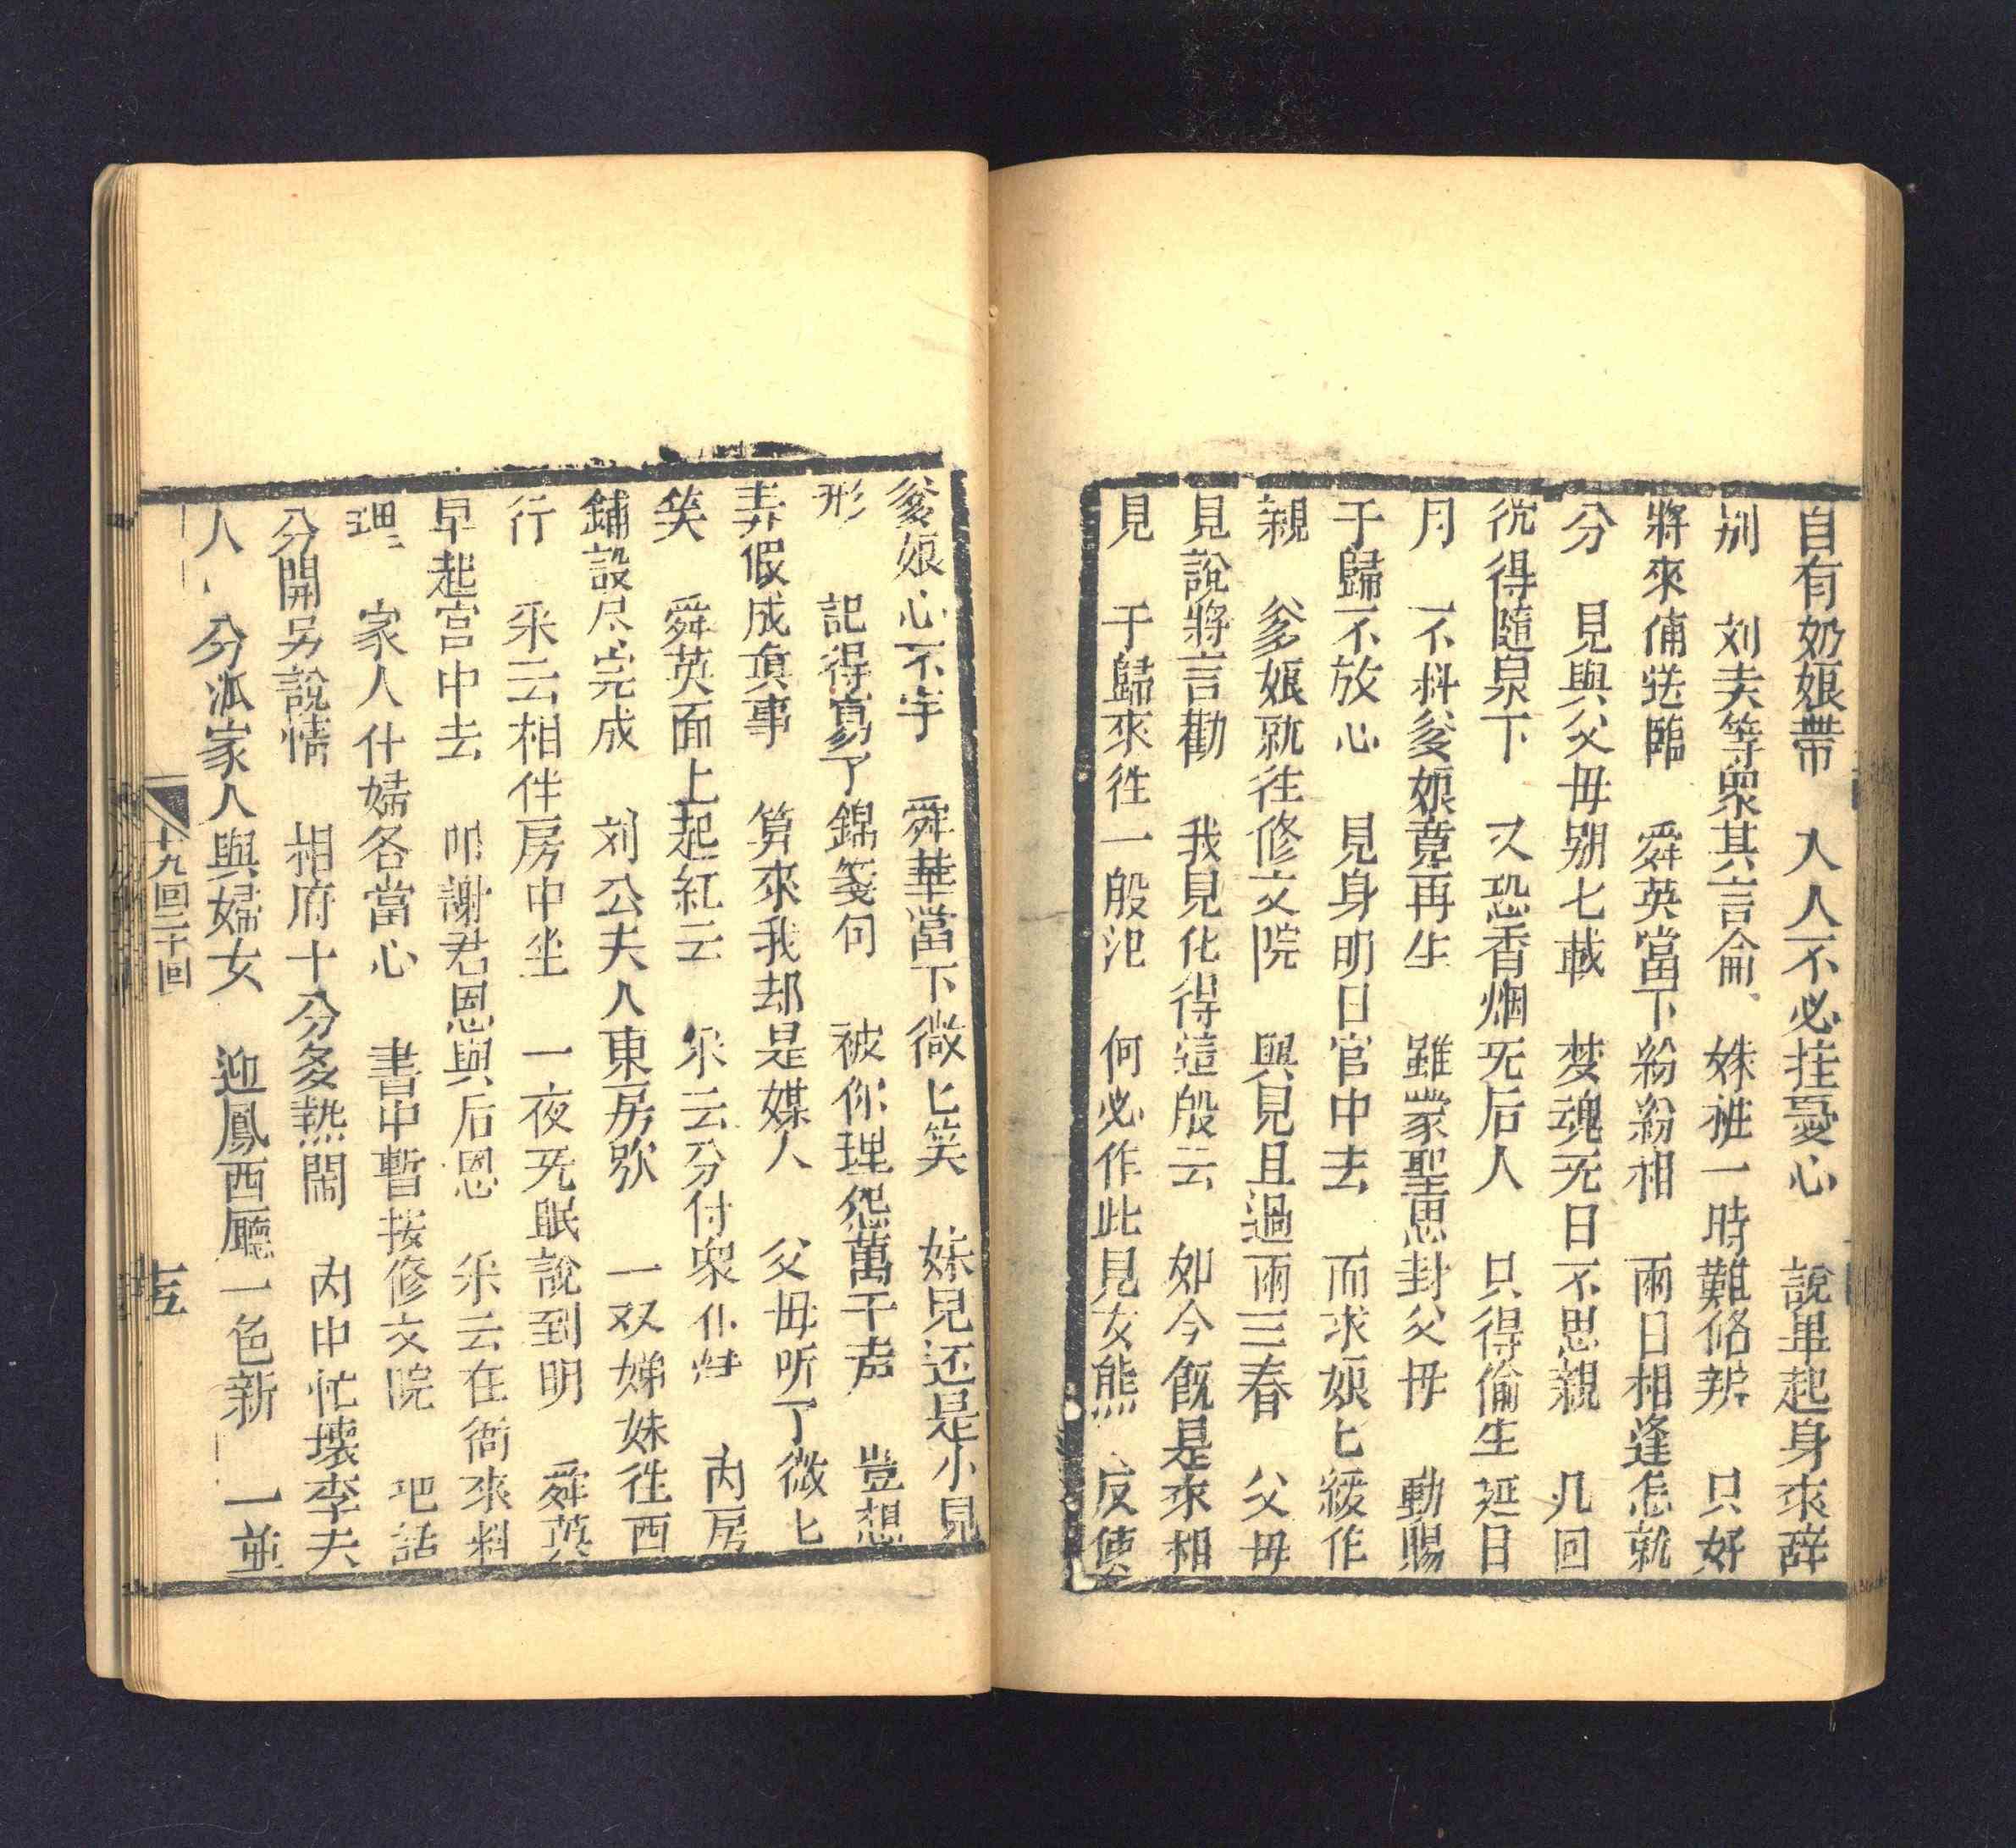 自有奶娘帶　人人不必挂憂心　說畢起身來辞
别　刘夫等眾其言侖　姝　一時難　　只好
將來俻送臨　舜英當下紛紛相　兩日相逢怎就
分　見與父母别七載　梦魂无日不思親　几回
　得隨泉下　又恐香烟无后人　只得偷生延日
月　不料爹娘竟再生　雖蒙聖恩封父母　動賜
于歸不放心　見身明日官中去　而求娘匕緩作
親　爹娘就往修文院　與見且過兩三春　父母
見說將言勸　我見化得這般云　如今旣是來相
見　于歸來往一般　　何必作此見女熊　反使
爹娘心不寧　舜華當下微匕笑　妹見还是小見
形　記得寫了錦箋句　被你理怨萬千声　豈想
弄假成真事　算來我却是媒人　父母听了微匕
笑　舜英面上起紅云　采云分付眾　　内房
鋪設尽完成　刘公夫人東房　　一双娣妹往西
行　采云相伴房中坐　一夜无眠說到明　舜英
早起宫中去　叩謝君恩與后恩　采云在衙來料
理　家人什婦各當心　書中暫按修文院　　話
分開另說情　相府十分多熱閙　内中忙壞李夫
人　分派家人與婦女　迎鳳西廳一色新　一並
十九回二十回